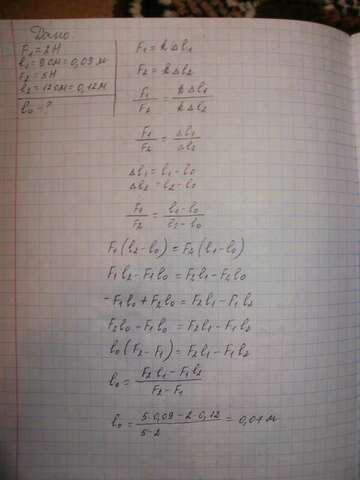 Дано:
F₁=2Н
l₁=9см=0,09м
F₂=5Н
l₂=12см=0,12м
l₀-?
F₁=kΔl₁
F₂=kΔl₂
F₁/F₂ = kΔl₁/kΔl₂
F₁/F₂ = Δl₁/Δl₂
Δl₁=l₁-l₀
Δl₂=l₂-l₀
F₁/F₂ = l₁-l₀/l₂-l₀
F₁(l₂-l₀)=F₂(l₁-l₀)
F₁l₂-F₁l₀=F₂l₁-F₂l₀
-F₁l₀+F₂l₀=F₂l₁-F₁l₂
F₂l₀-F₁l₀=F₂l₁-F₁l₂
l₀(F₂-F₁)=F₂l₁-F₁l₂
l₀=F₂l₁-F₁l₂/F₂-F₁
l₀=5·0,09-2·0,12/5-2=0,07м